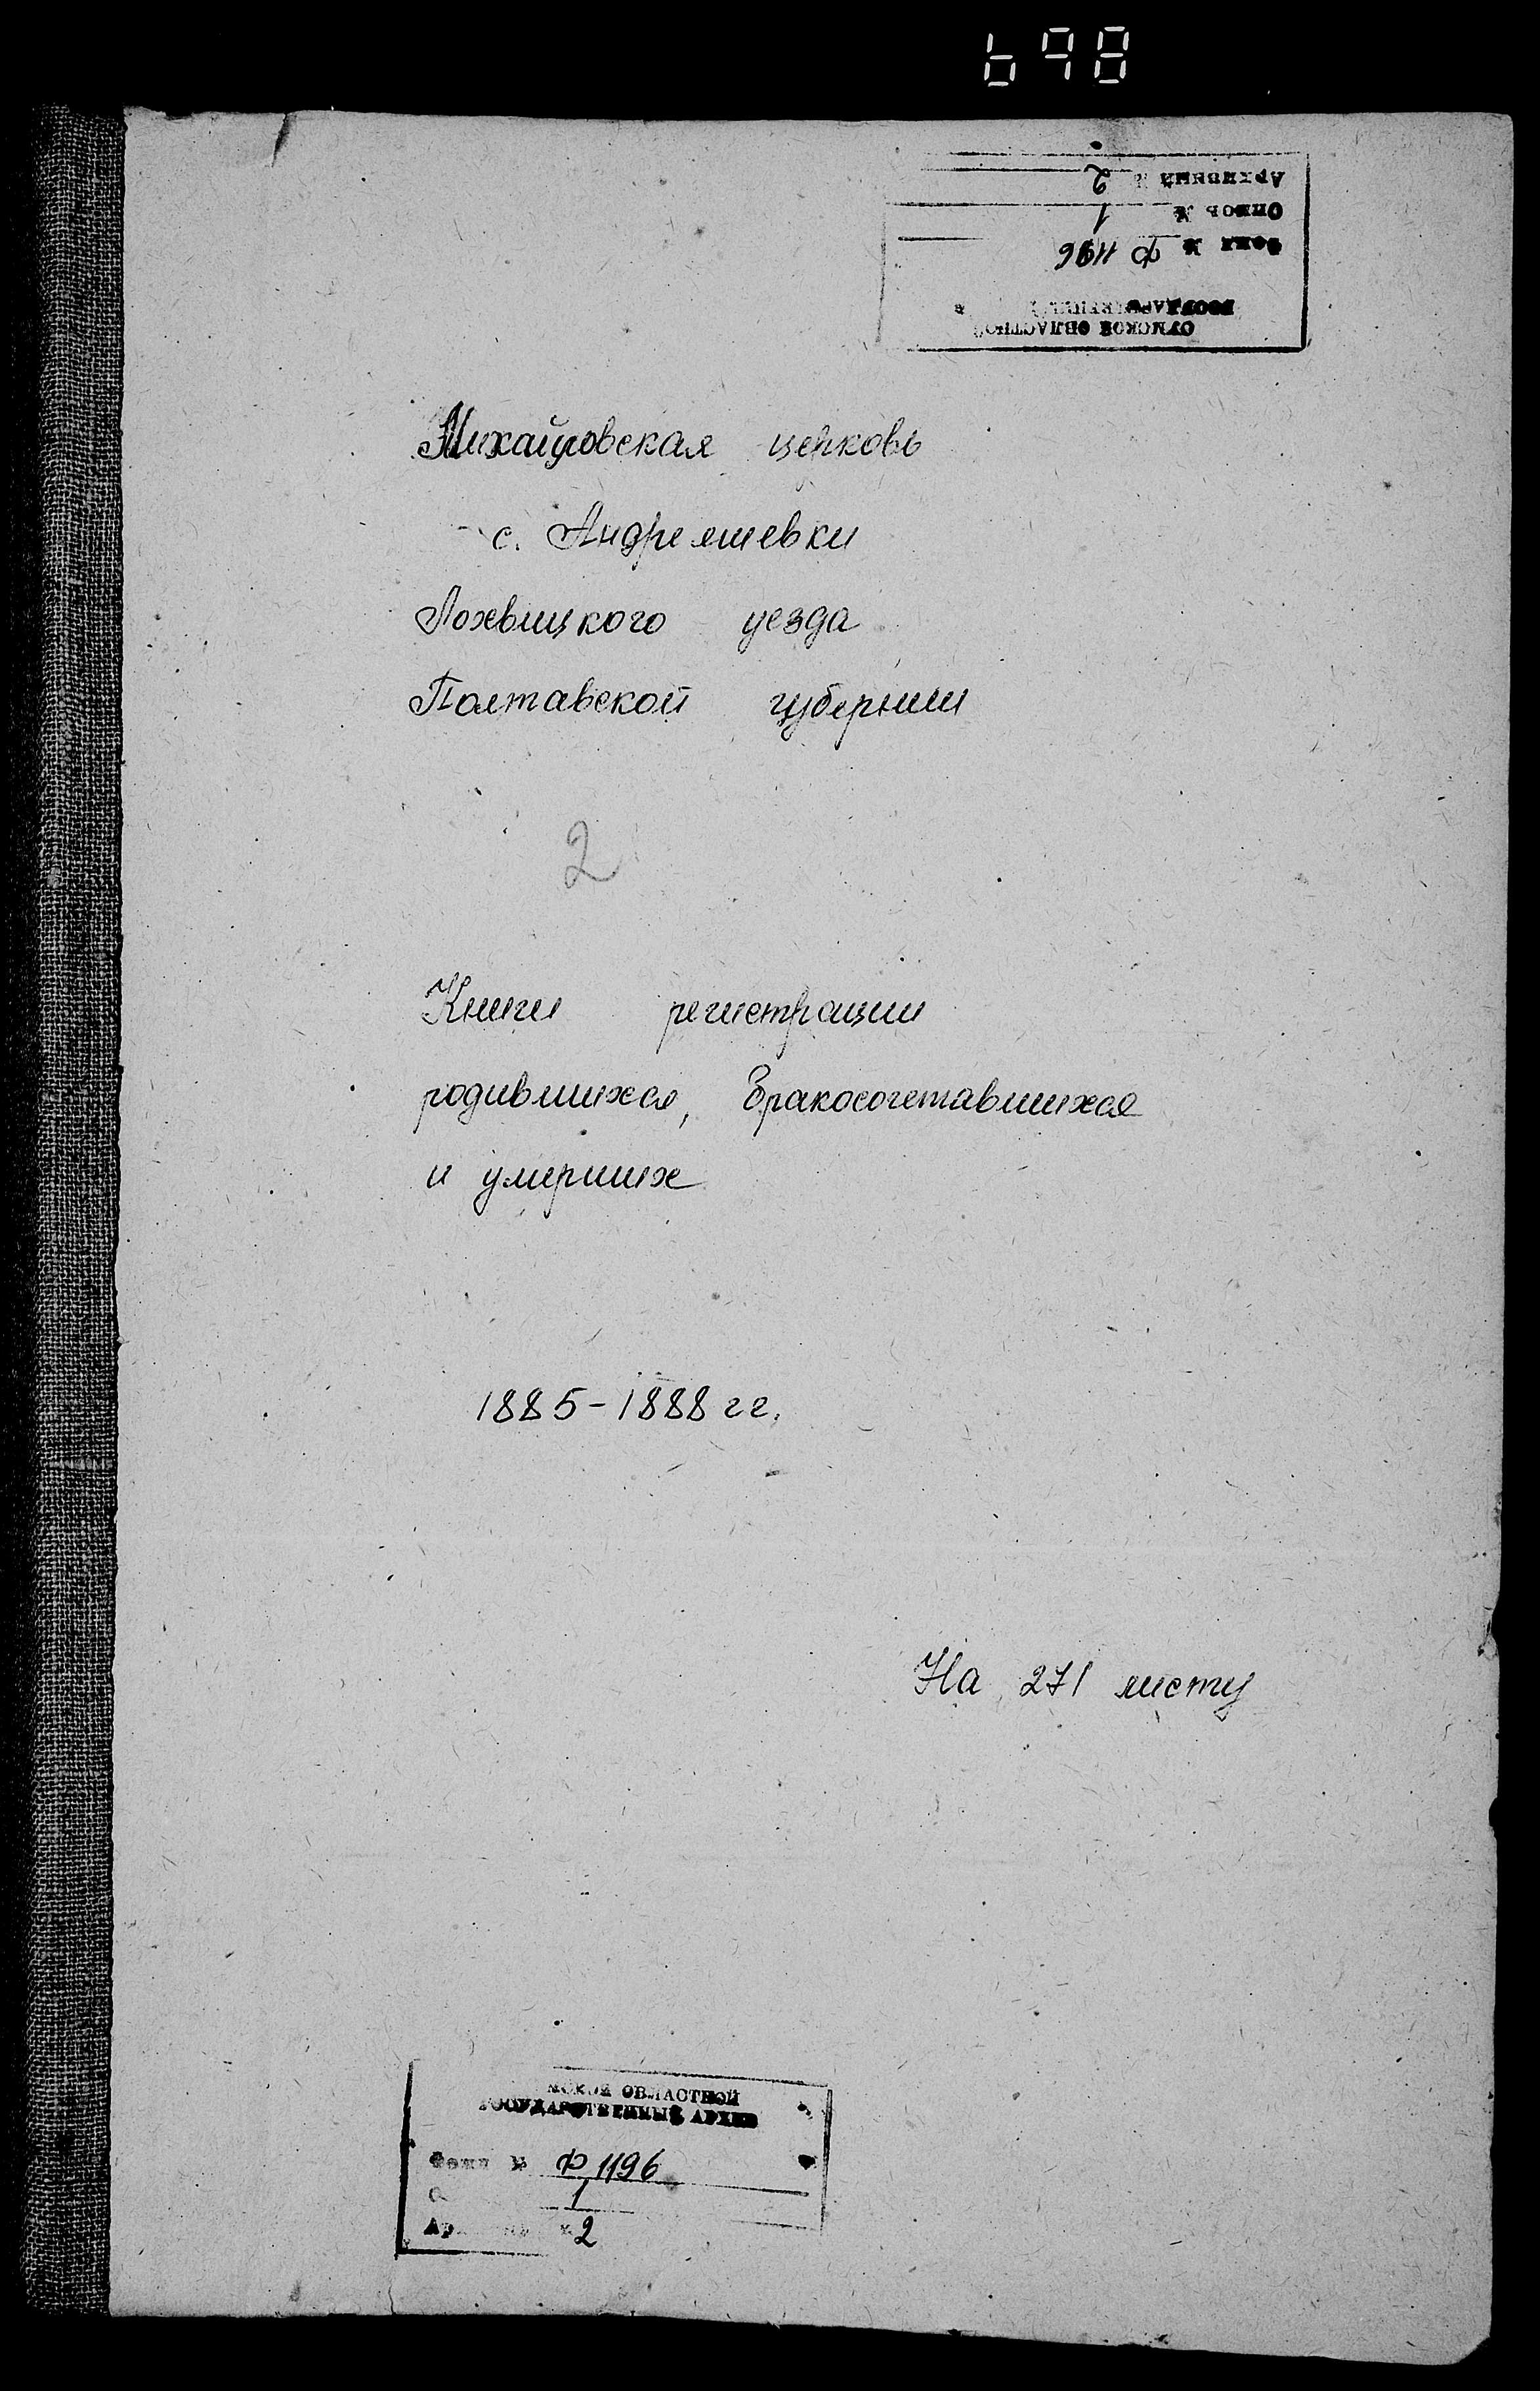 698
СУМСКОЙ ОБЛАСТНОЙ
ГОСУДАРСТВЕННЫЙ
Фонд № Ф 1196
Опись № 1
Архивный № 2
Михайловская церковь
с. Андреяшевки
Лохвицкого уезда
Полтавской губернии
2
Книги регистрации
родившихся, бракосочетавшихся
и умерших
1885-1888 гг.
На 271 листу
СУМСКОЙ ОБЛАСТНОЙ
ГОСУДАРСТВЕННЫЙ АРХИВ
Фонд № Ф 1196
1
2